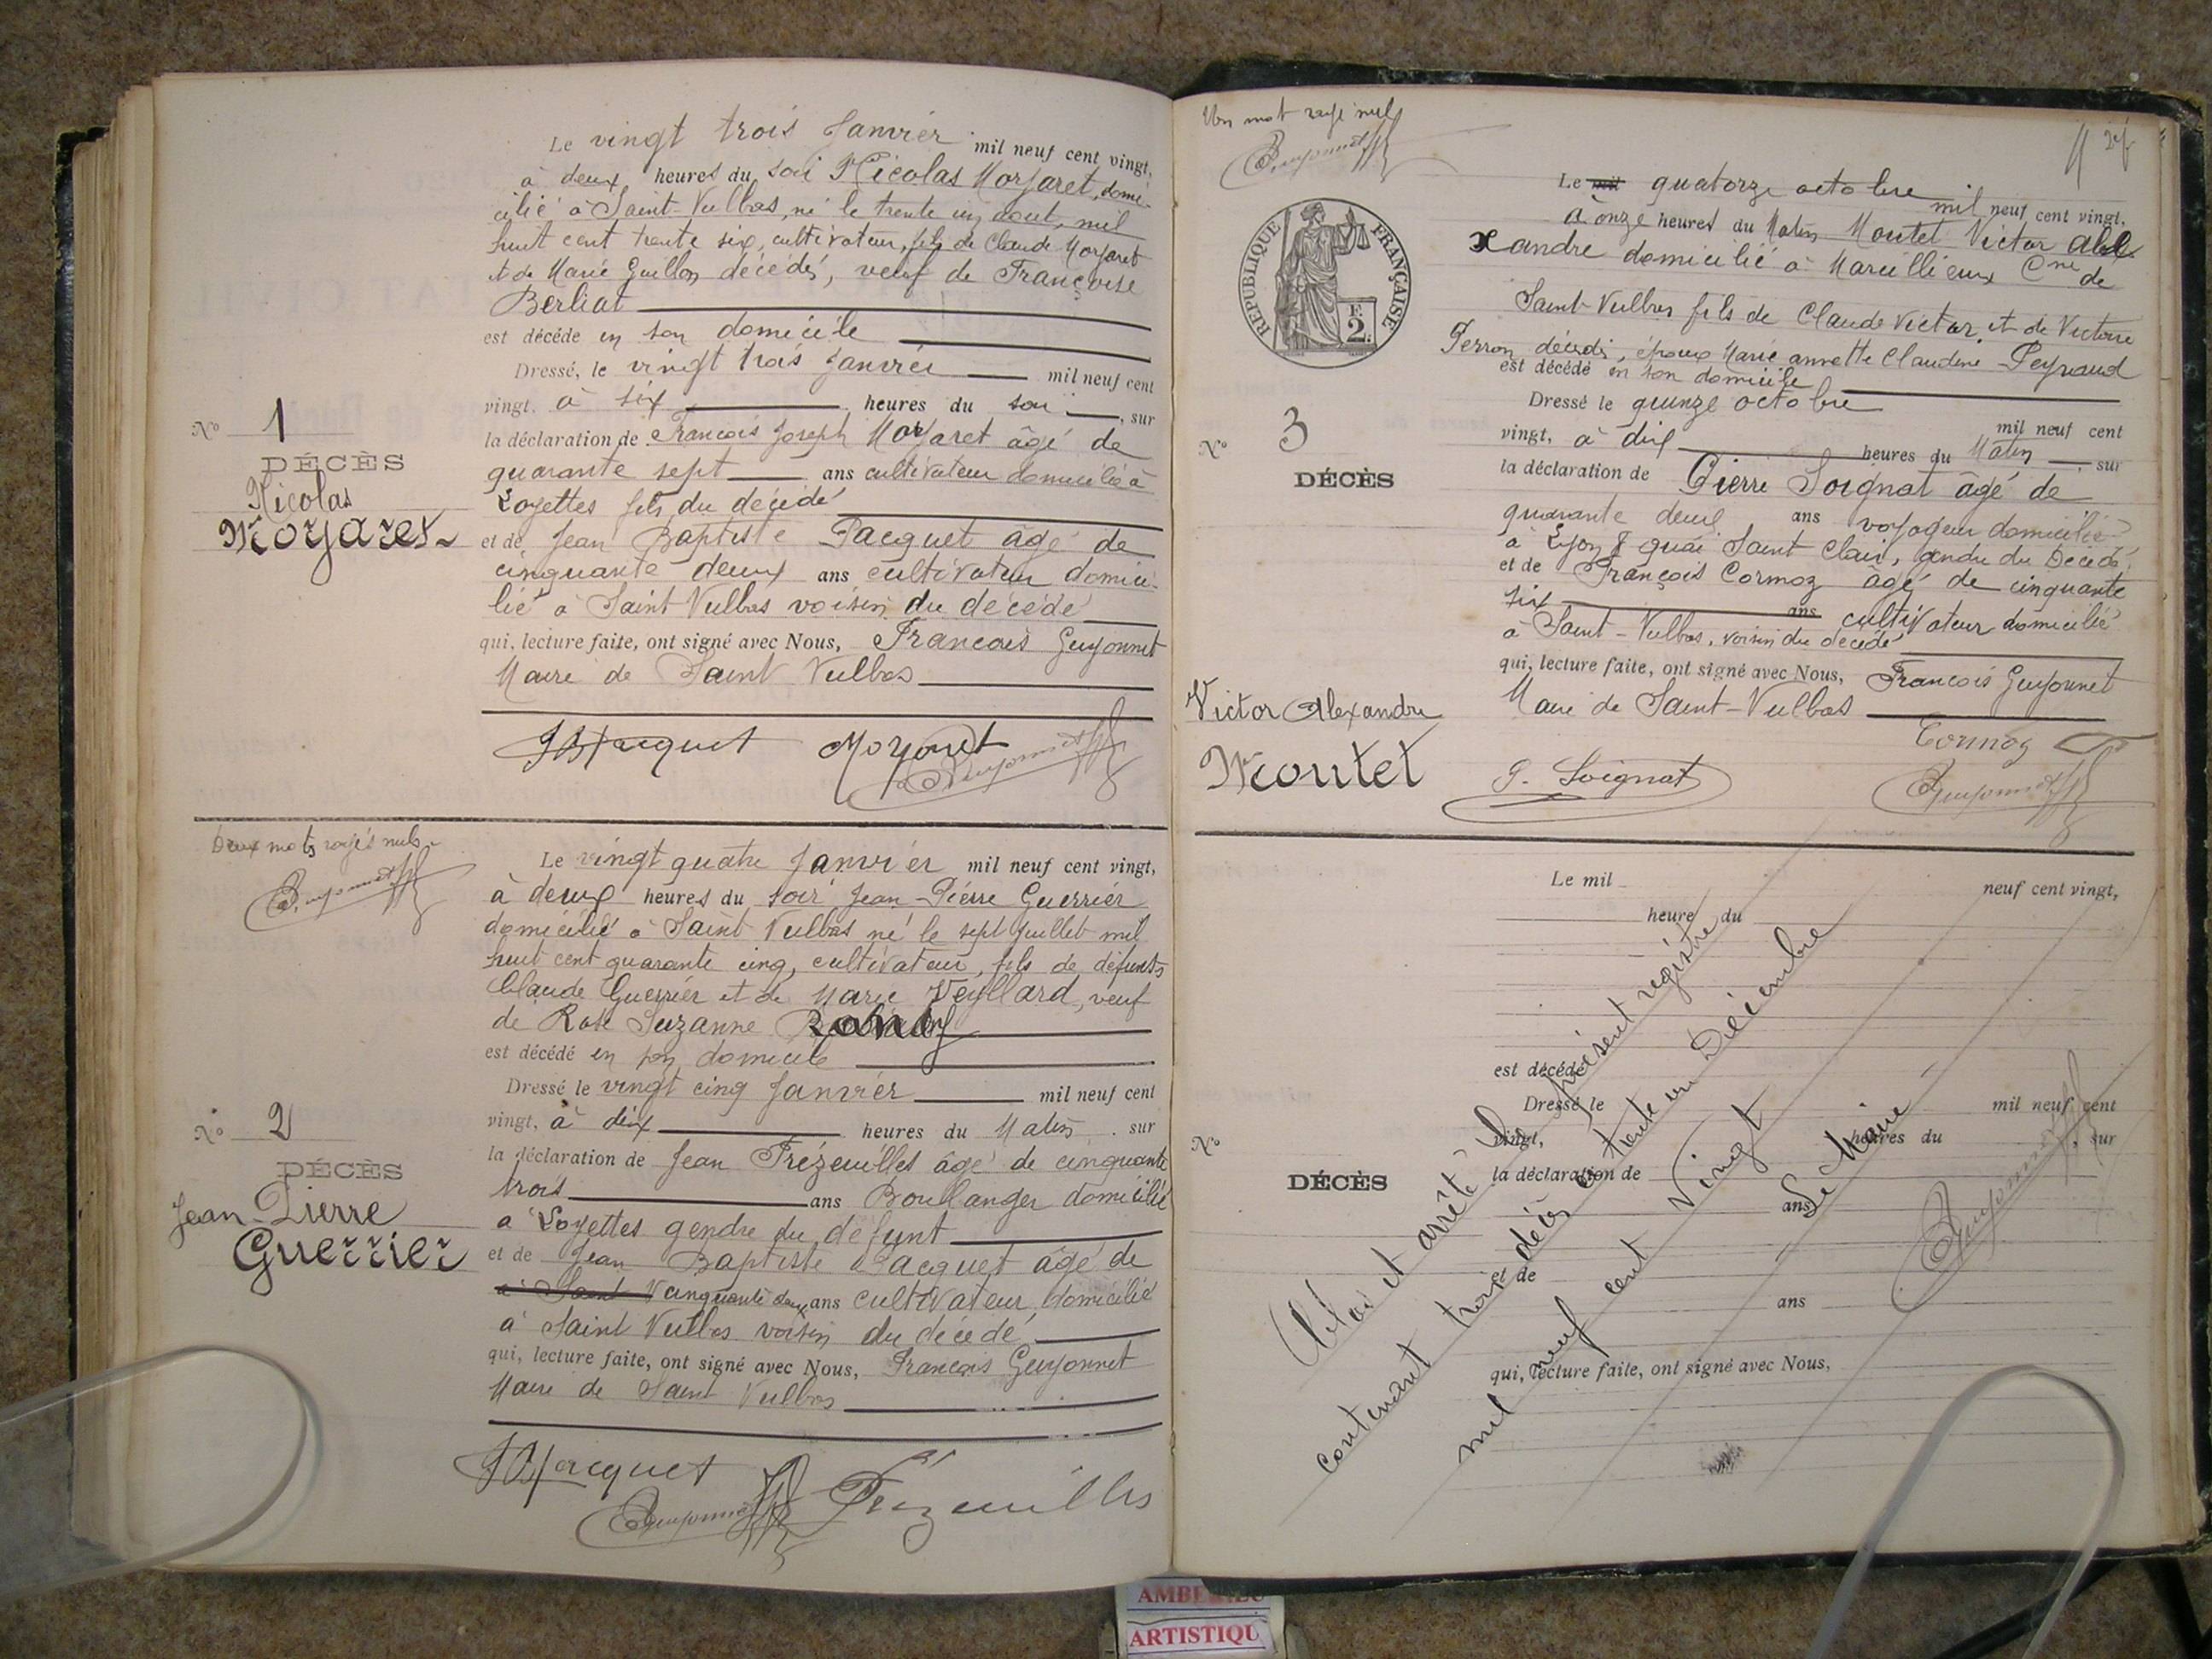 Le vingt trois Janvier mil neuf cent vingt,
à deux heures du soir Nicolas Moyaret, domi-
cilié à Saint-Vulbas, né le trente un aout, mil
huit cent trente six, cultivateur, fils de Claude Moyaret
et de Marie Guillon décédés, veuf de Françoise
Berliat
est décédé en son domicile
Dressé, le vingt trois Janvier mil neuf cent
vingt, à six heures du soir, sur
la déclaration de François Joseph Moyaret âgé de
quarante sept ans cultivateur domicilié à
Loyettes fils du décédé
et de Jean Baptiste Jacquet âgé de
cinquante deux ans cultivateur domici-
lié à Saint Vulbas voisin du décédé
qui, lecture faite, ont signé avec Nous, François Guyonnet
Maire de Saint Vulbas
N° 1
DÉCÈS
Nicolas
Moyaret
JB Jacquet Moyaret
Guyonnet
Deux mots rayés nuls
Guyonnet
Le vingt quatre Janvier mil neuf cent vingt,
à deux heures du soir Jean-Pierre Guerrier
domicilié à Saint Vulbas né le sept juillet mil
huit cent quarante cinq, cultivateur, fils de défunts
Claude Guerrier et de Marie Veyllard, veuf
de Rose Suzanne
est décédé en son domicile
Dressé le vingt cinq Janvier mil neuf cent
vingt, à dix heures du Matin, sur
la déclaration de Jean Trézeuilles âgé de cinquante
trois ans Boullanger domicilié
à Loyettes gendre du défunt
et de Jean Baptiste Jacquet âgé de
à Saint V cinquante deux ans cultivateur domicilié
à Saint Vulbas voisin du décédé
qui, lecture faite, ont signé avec Nous, François Guyonnet
Maire de Saint Vulbas
N° 2
DÉCÈS
Jean-Pierre
Guerrier
JB Jacquet
Guyonnet Trézeuilles
Un mot rayé nul
Guyonnet
REPUBLIQUE FRANÇAISE
F.
2.
Le mil quatorze octobre mil neuf cent vingt,
à onze heures du Matin Moutet Victor Ale
xandre domicilié à Marcillieux Cne de
Saint-Vulbas fils de Claude Victor et de Victoire
Perron décédés, époux Marie annette Claudine Peyraud
est décédé en son domicile
Dressé le quinze octobre mil neuf cent
vingt, à dix heures du Matin, sur
la déclaration de Pierre Soignat âgé de
quarante deux ans voyageur domicilié
à Lyon 8 quai Saint Clair, gendre du Décédé
et de François Cormoz âgé de cinquante
six ans cultivateur domicilié
à Saint-Vulbas, voisin du décédé
qui, lecture faite, ont signé avec Nous, François Guyonnet
Maire de Saint-Vulbas
N° 3
DÉCÈS
Victor Alexandre
Moutet
Cormoz
P. Soignat
Guyonnet
Le mil neuf cent vingt,
heure du
est décédé
Dressé le mil neuf cent
vingt, heures du , sur
la déclaration de
ans
et de
ans
qui, lecture faite, ont signé avec Nous,
N°
DÉCÈS
Clos et arrêté le présent registre
contenant trois décès le trente un Décembre
mil neuf cent vingt
Le Maire
Guyonnet
ARTISTIQU